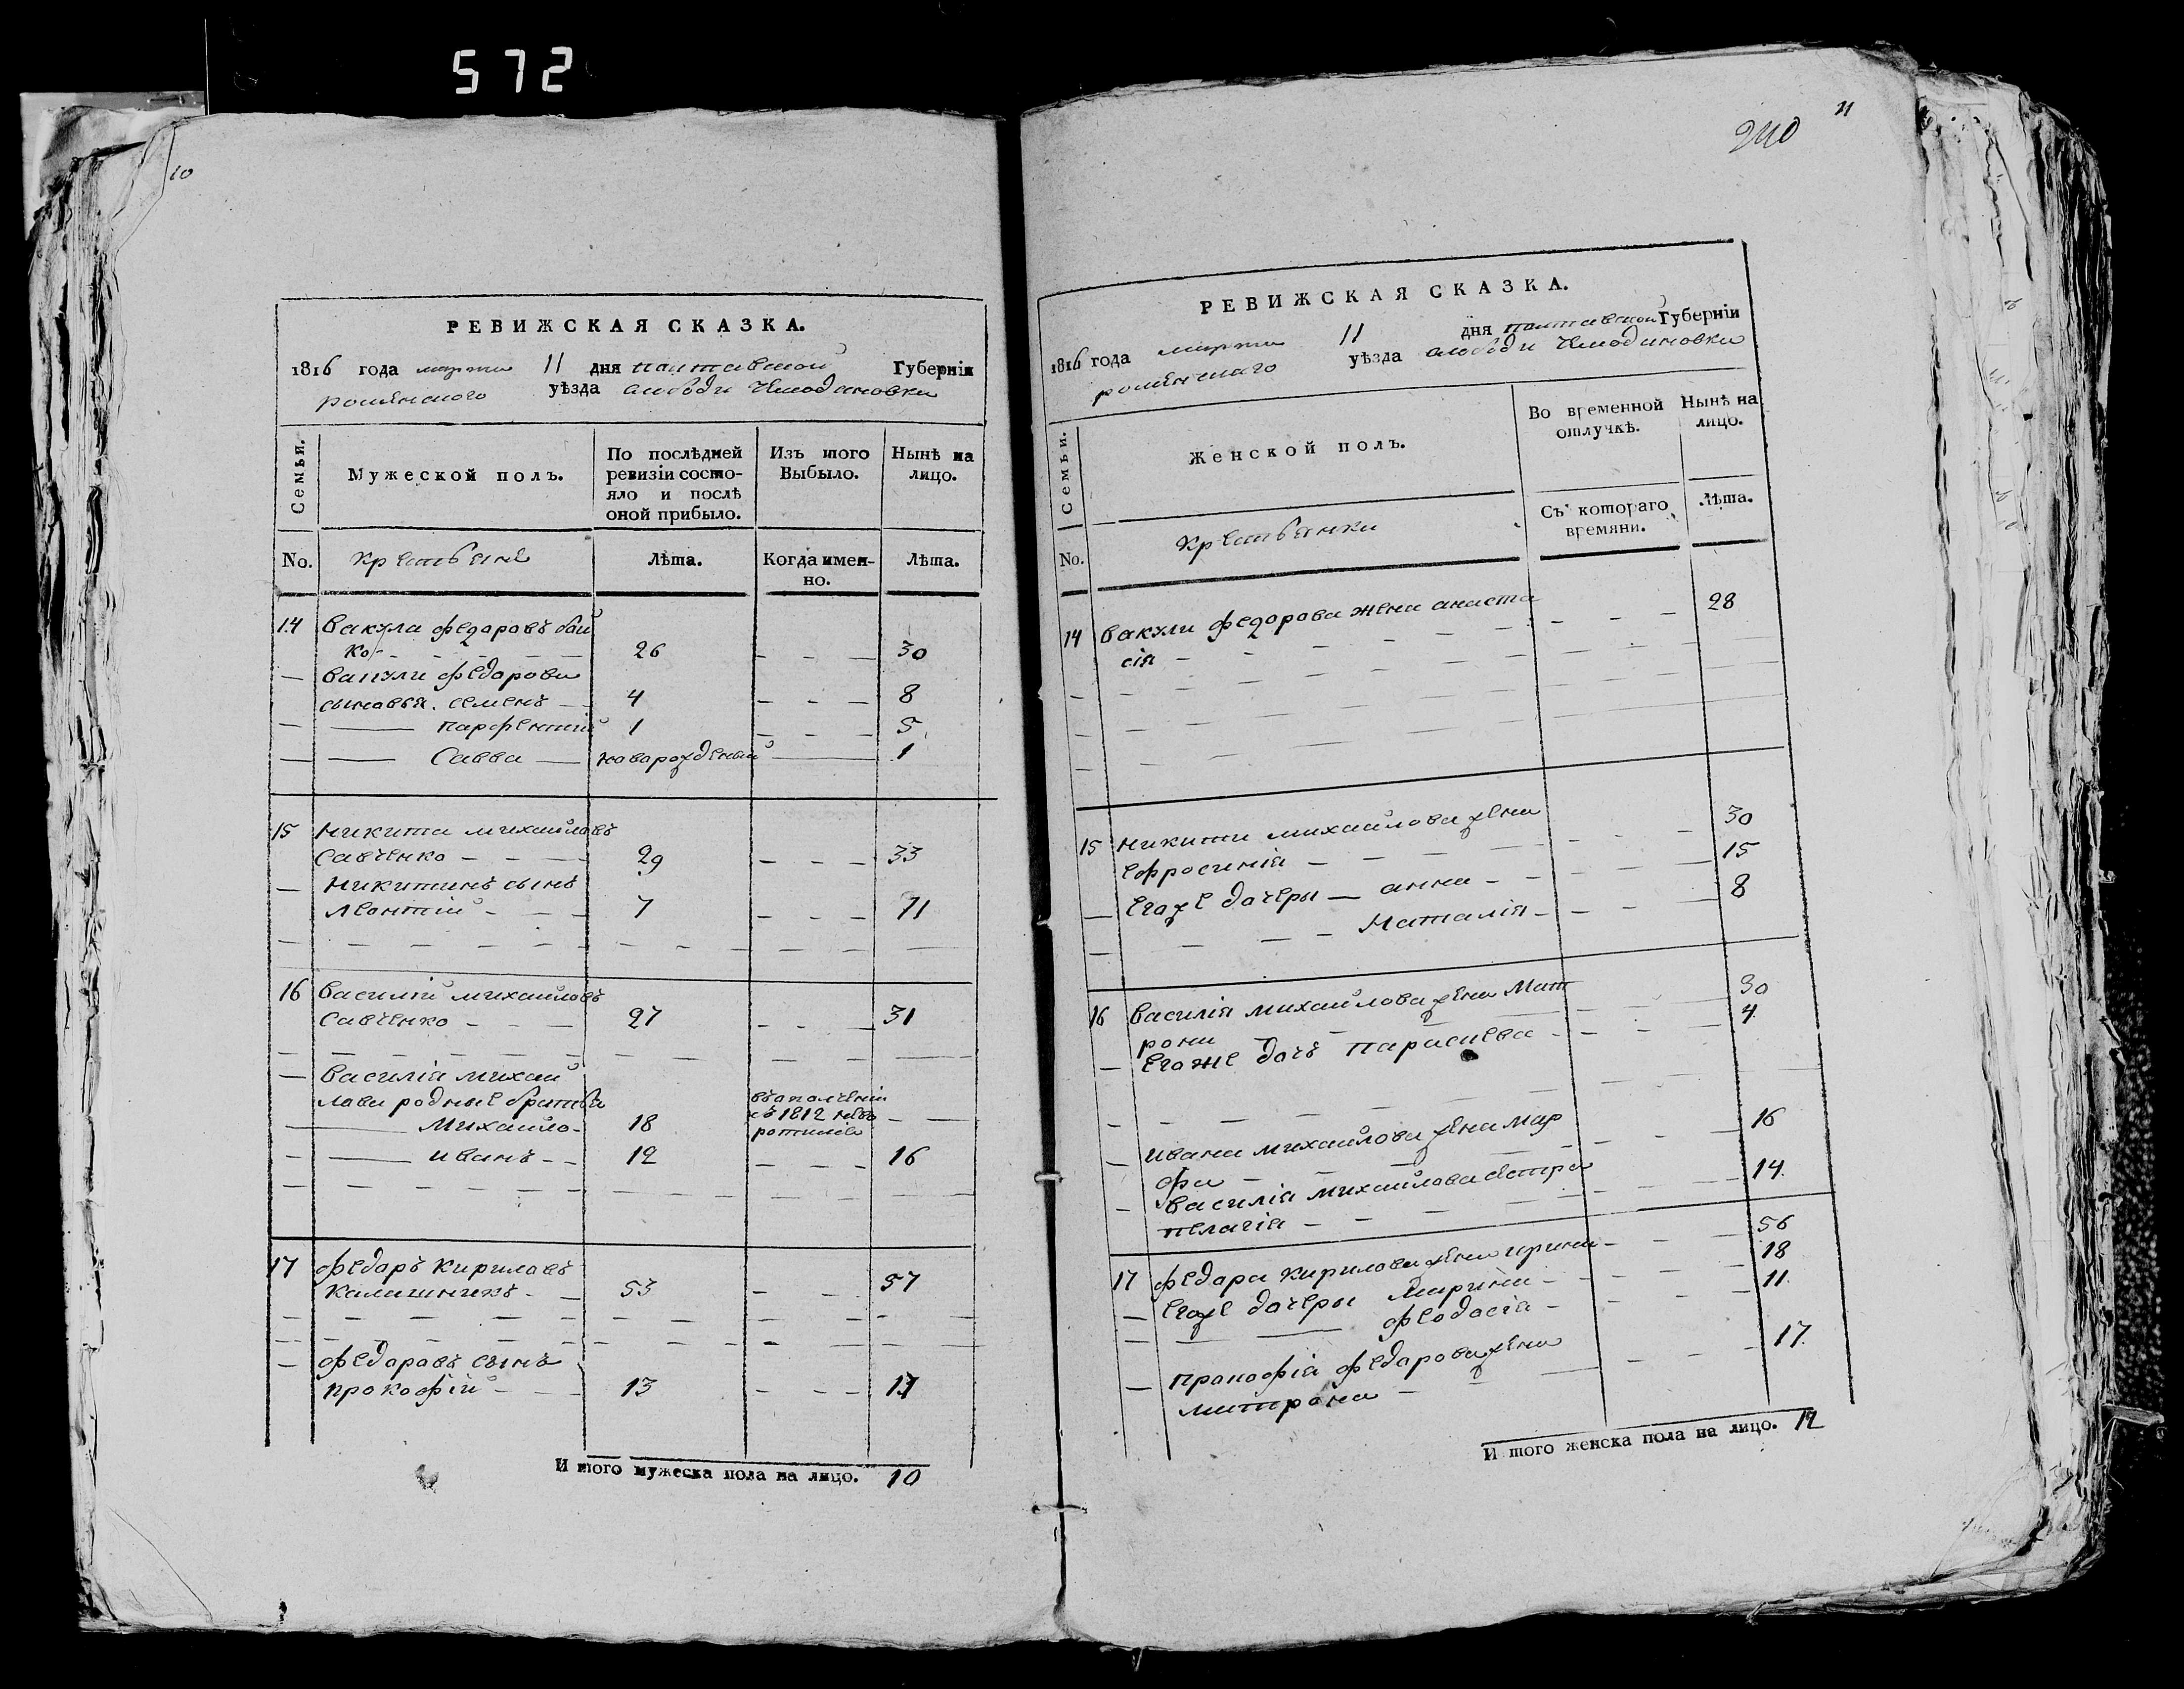 572
10
РЕВИЖСКАЯ СКАЗКА.
1816 года марта 11 дня полтавской Губерніи
роменского уѣзда слободи Чемодановки
Семьи.
Мужеской полъ.
По послѣдней ревизіи состо-
яло и послѣ
оной прибыло.
Изъ того
Выбыло.
Нынѣ на
лицо.
No. Крестьяне Лѣта. Когда имен-
но. Лѣта.
14 Вакула Федоровъ бой
ко 26 — — — 30
— Вакули Федорова
сыновья. Семенъ — 4 — — — 8
— —— Парфентий 1 — — — 5
— —— Савва — новорожденый —— 1
15 Никита Михайловъ
Савченко — — — 29 — — — 33
— Никитинъ сынъ
Леонтій — — — 7 — — — 11
16 Василій Михайловъ
Савченко — — — 27 — — — 31
— Василія Михай
лова родные братья
—— Михайло — 18 въ ополченіи
съ 1812 невоз
ротился — —
— —— Иванъ — — 12 — — — 16
17 Федаръ Кириловъ
Калашникъ — — 53 — — — 57
— Федаравъ сынъ
Прокофій — — 13 — — — 17
И того мужеска пола на лицо. 10
11
240
РЕВИЖСКАЯ СКАЗКА.
1816 года марта 11 дня полтавской Губерніи
роменскаго уѣзда слободи Чемодановки
Семьи.
Женской полъ.
Во временной
отлучкѣ.
Нынѣ на
лицо.
No. Крестьянки Съ котораго
времяни. Лѣта.
14 Вакули Федорова жена анаста
сія — — — 28
15 Никити Михайлова жена
Ефросинія — — — 30
— Егоже дочеры — анна — — — 15
— — — Наталія — — — 8
16 Василія Михайлова жена Мат
рона — — — 30
— Егоже дочъ Параскева — — — 4
— Ивана Михайлова жена Мар
фа — — — 16
— Василія Михайлова сестра
пелагія — — — 14
17 Федора Кирилова жена ирина — — — 56
— Егоже дочеры Марина — — — 18
— —— Феодосія — — — 11
— Прокофія Федарова жена
матрона — — — 17
И того женска пола на лицо. 12